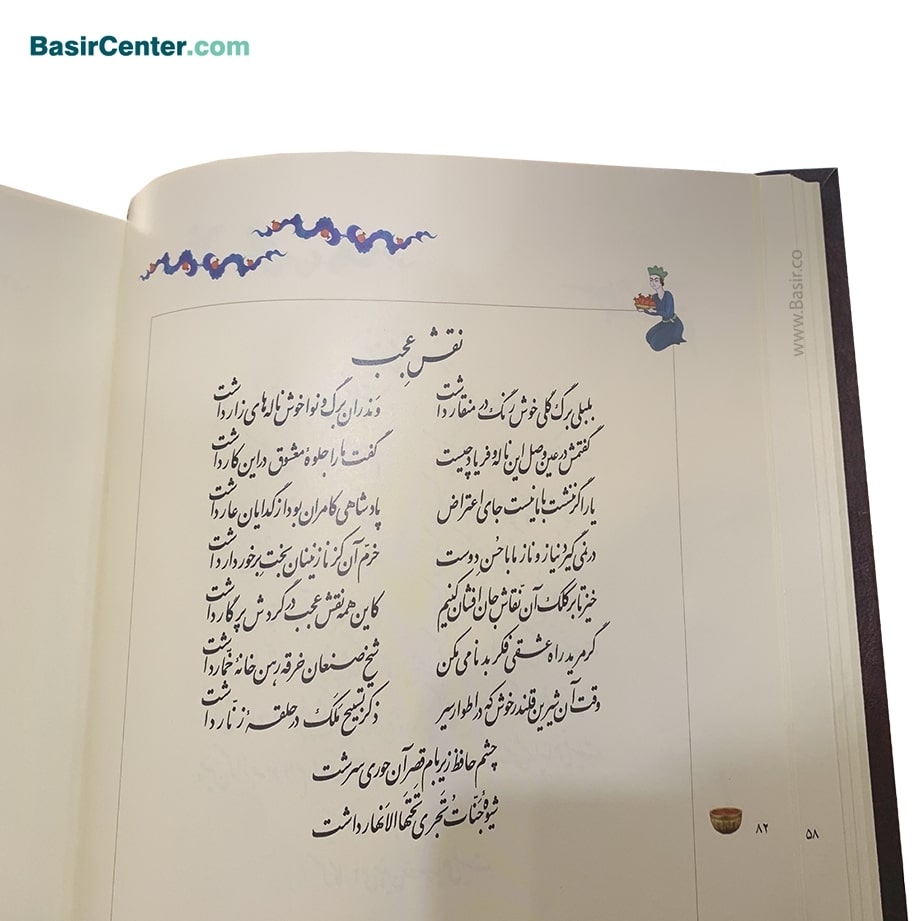 BasirCenter.com
www.Basir.co
نقشِ عجب
بلبلی برگ گلی خوش رنگ در منقار داشت وَندران برگ و نوا خوش ناله‌های زار داشت
گفتمش در عین وصل این ناله و فریاد چیست گفت ما را جلوهٔ معشوق در این کار داشت
یار اگر ننشست با ما نیست جای اعتراض پادشاهی کامران بود از گدایان عار داشت
در نمی‌گیرد نیاز و ناز ما با حُسن دوست خرّم آن کز نازنینان بختِ برخوردار داشت
خیز تا بر کلک آن نقّاش جان افشان کنیم کاین همه نقش عجب در گردش پرگار داشت
گر مرید راه عشقی فکر بدنامی مکن شیخ صنعان خرقه رهن خانهٔ خمّار داشت
وقت آن شیرین قلندر خوش که در اطوار سیر ذکر تسبیح مَلَک در حلقهٔ زنّار داشت
چشم حافظ زیر بام قصر آن حوری سرشت
شیوهٔ جنّاتُ تَجری تَحتَها الاَنهار داشت
۸۲
۵۸